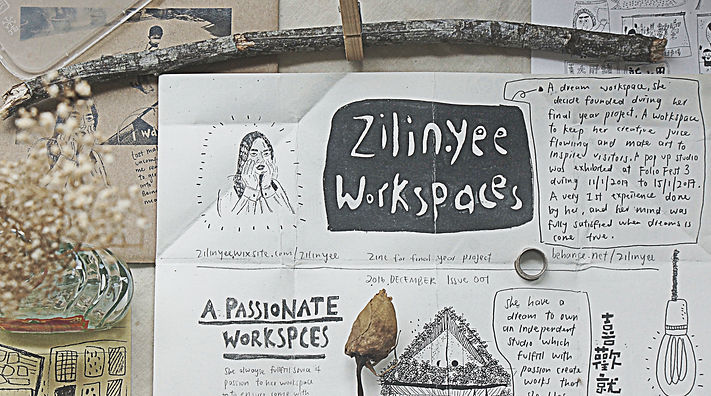 Zilin.yee
Workspaces
A dream workspace, she
decide founded during her
final year project. A workspace
to keep her creative juice
flowing and make art to
inspire visitors. A pop up studio
was exhibited at Folio Fest 3
during 11/1/2017 to 15/1/2017.
A very 1st experience done
by her, and her mind was
fully satisfied when dreams is
come true.
zilinyeewixsite.com/zilinyee
Zine for final year project
behance.net/zilinyee
2016, DECEMBER Issue 001
A PASSIONATE
WORKSPCES
passion to her workspace
She have a
dream to own
an independent
studio which
fulfill with
passion create
works that
喜
歡
就